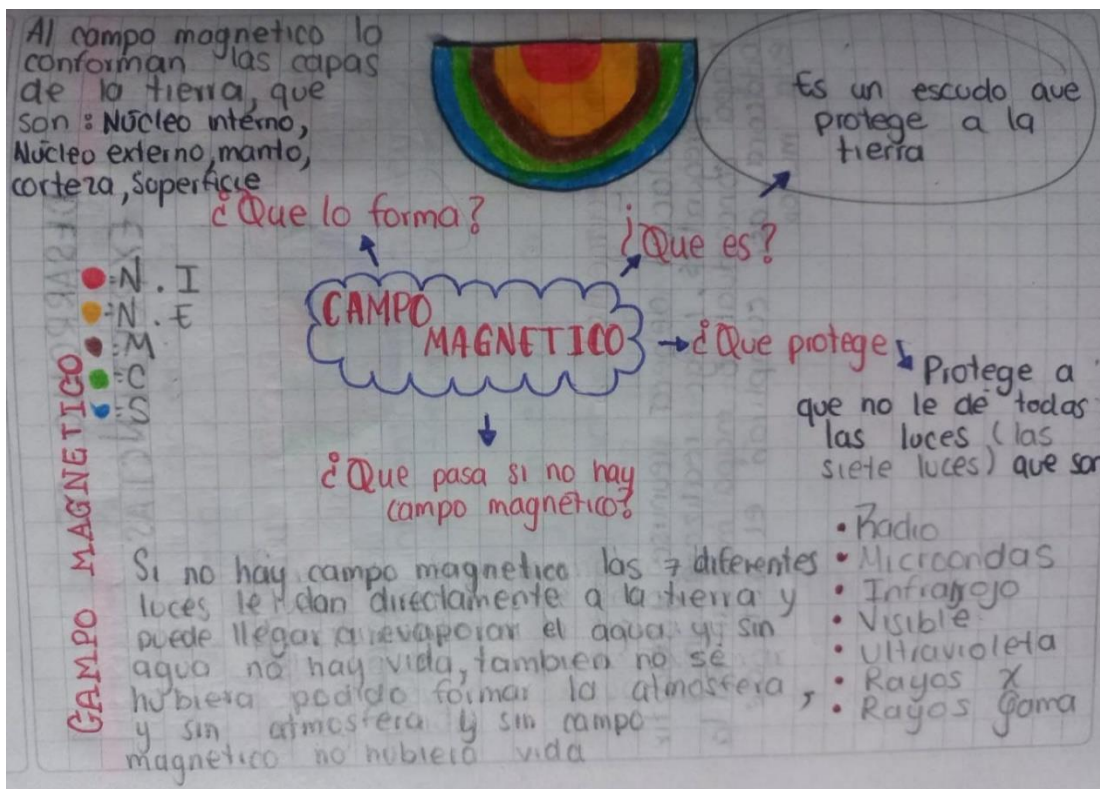 Al campo magnetico lo
conforman las capas
de la tierra, que
son: Núcleo interno,
Núcleo externo, manto,
corteza, Superficie
¿Que lo forma?
Es un escudo que
protege a la
tierra
¿Que es?
N. I
N. E
M
C
S
CAMPO MAGNETICO
CAMPO
MAGNETICO
¿Que protege
Protege a
que no le de todas
las luces (las
siete luces) que son
• Radio
• Microondas
• Infarrojo
• Visible
• Ultravioleta
• Rayos X
• Rayos gama
¿Que pasa si no hay
campo magnetico?
Si no hay campo magnetico las 7 diferentes
luces le dan directamente a la tierra y
puede llegar a evaporar el agua y sin
agua no hay vida, tambien no se
hubiera podido formar la atmosfera,
y sin atmosfera y sin campo
magnetico no hubiera vida